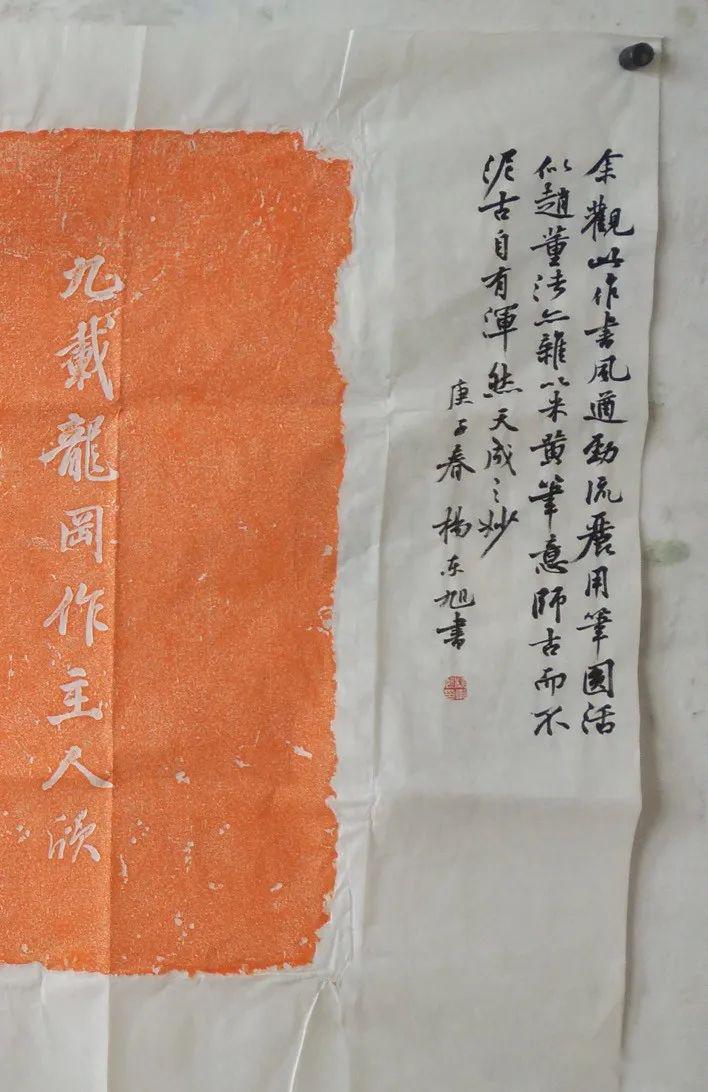 余觀此作書風遒勁流麗用筆圓活
似趙董法亦雜以米黃筆意師古而不
泥古自有渾然天成之妙
庚子春楊東旭書
九載龍岡作主人欣